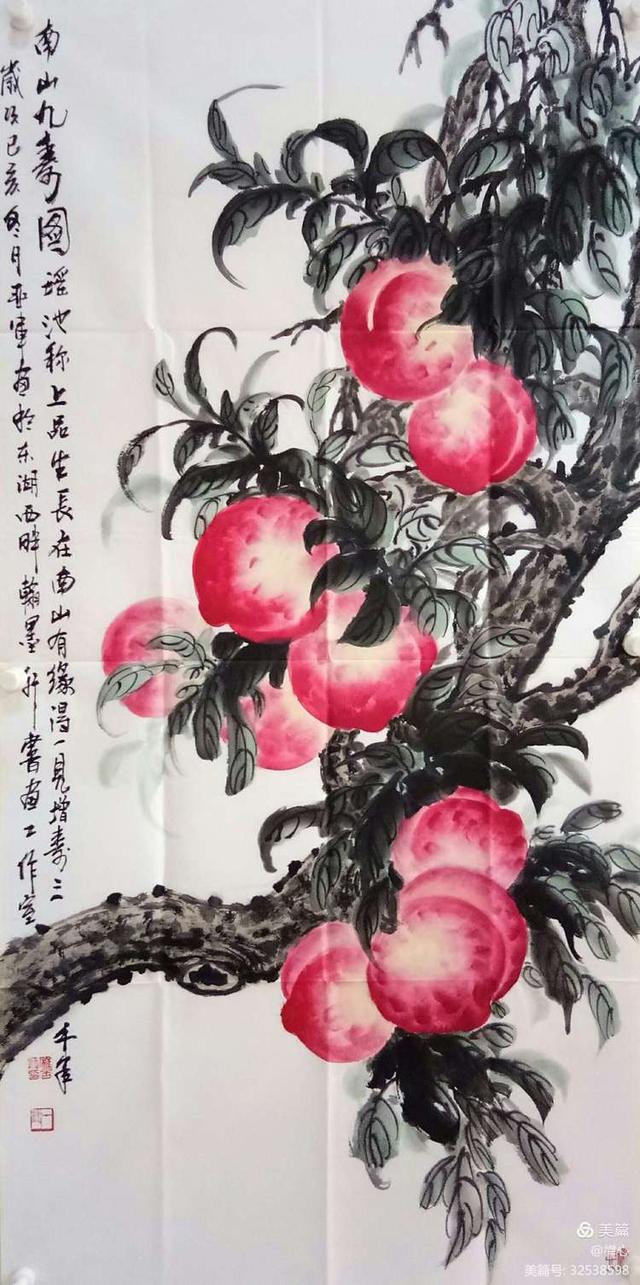 南山九寿图 瑶池称上品生長在南山有缘得一見增寿三
千年
歲次己亥冬月亚軍画於东湖西畔翰墨轩書画工作室
美篇
美篇号: 32538598